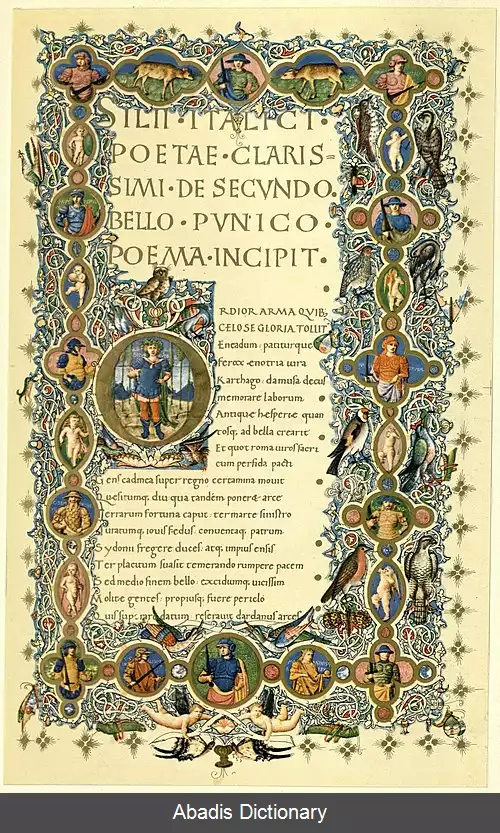 SILII · ITALICI ·
POETAE · CLARIS=
SIMI · DE SECVNDO ·
BELLO · PVNICO ·
POEMA · INCIPIT ·
ORDIOR ARMA QVIB;
CELO SE GLORIA TOLLIT
Eneadum: patiturque
ferox enotria iura
Karthago: da musa decus
memorare laborum
Antiquę hesperię quan
tosq; ad bella crearit
Et quot roma uiros sacri
cum perfida pacti
Gens cadmea super regno certamina mouit
Quesitumq; diu qua tandem poneret arce
Terrarum fortuna caput: ter marte sinistro
Iuratumq; iouis foedus: conuentaq; patrum
Sydonii fregere duces: atq; impius ensis
Ter placitum suasit temerando rumpere pacem
Sed medio finem bello: excidiumq; uicissim
Molitę gentes: propiusq; fuere periclo
Quis superare datum: reserauit dardanus arces
Abadis Dictionary